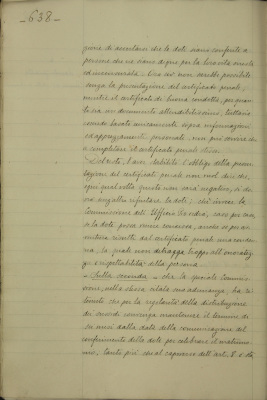 -638-
zione di accertarsi che le doti siano conferite a
persone che ne siano degne per la loro vita onesta
ed incensurata. Era ciò non sarebbe possibile
senza la presentazione del certificato penale,
mentre il certificato di buona condotta, per quan
to sia un documento attendibilissimo, tuttavia
essendo basato unicamente sopra informazioni
ed apprezzamenti personali, non può servire che
a completare il certificato penale stesso.
Del resto, l'aver stabilito l'obbligo della presen
tazione del certificato penale non vuol dire che,
ogni qual volta questo non sarà negativo, si de
va senz'altro rifiutare la dote; chè invece la
Commissione dell'Ufficio, caso per caso,
se la dote possa essere concessa, anche se per av
ventura risulti dal certificato penale una condan
na, la quale non detragga troppo all'onorabilità
e rispettabilità della persona.
"Sulla seconda - che la speciale Commis
sione, nella stessa citata sua adunanza, ha ri
tenuto che per la regolarità della distribuzione
dei sussidi convenga mantenere il termine di
sei mesi dalla data della comunicazione del
conferimento della dote per celebrare il matrimo
nio; tanto più che al capoverso dell'art. 8 è sta